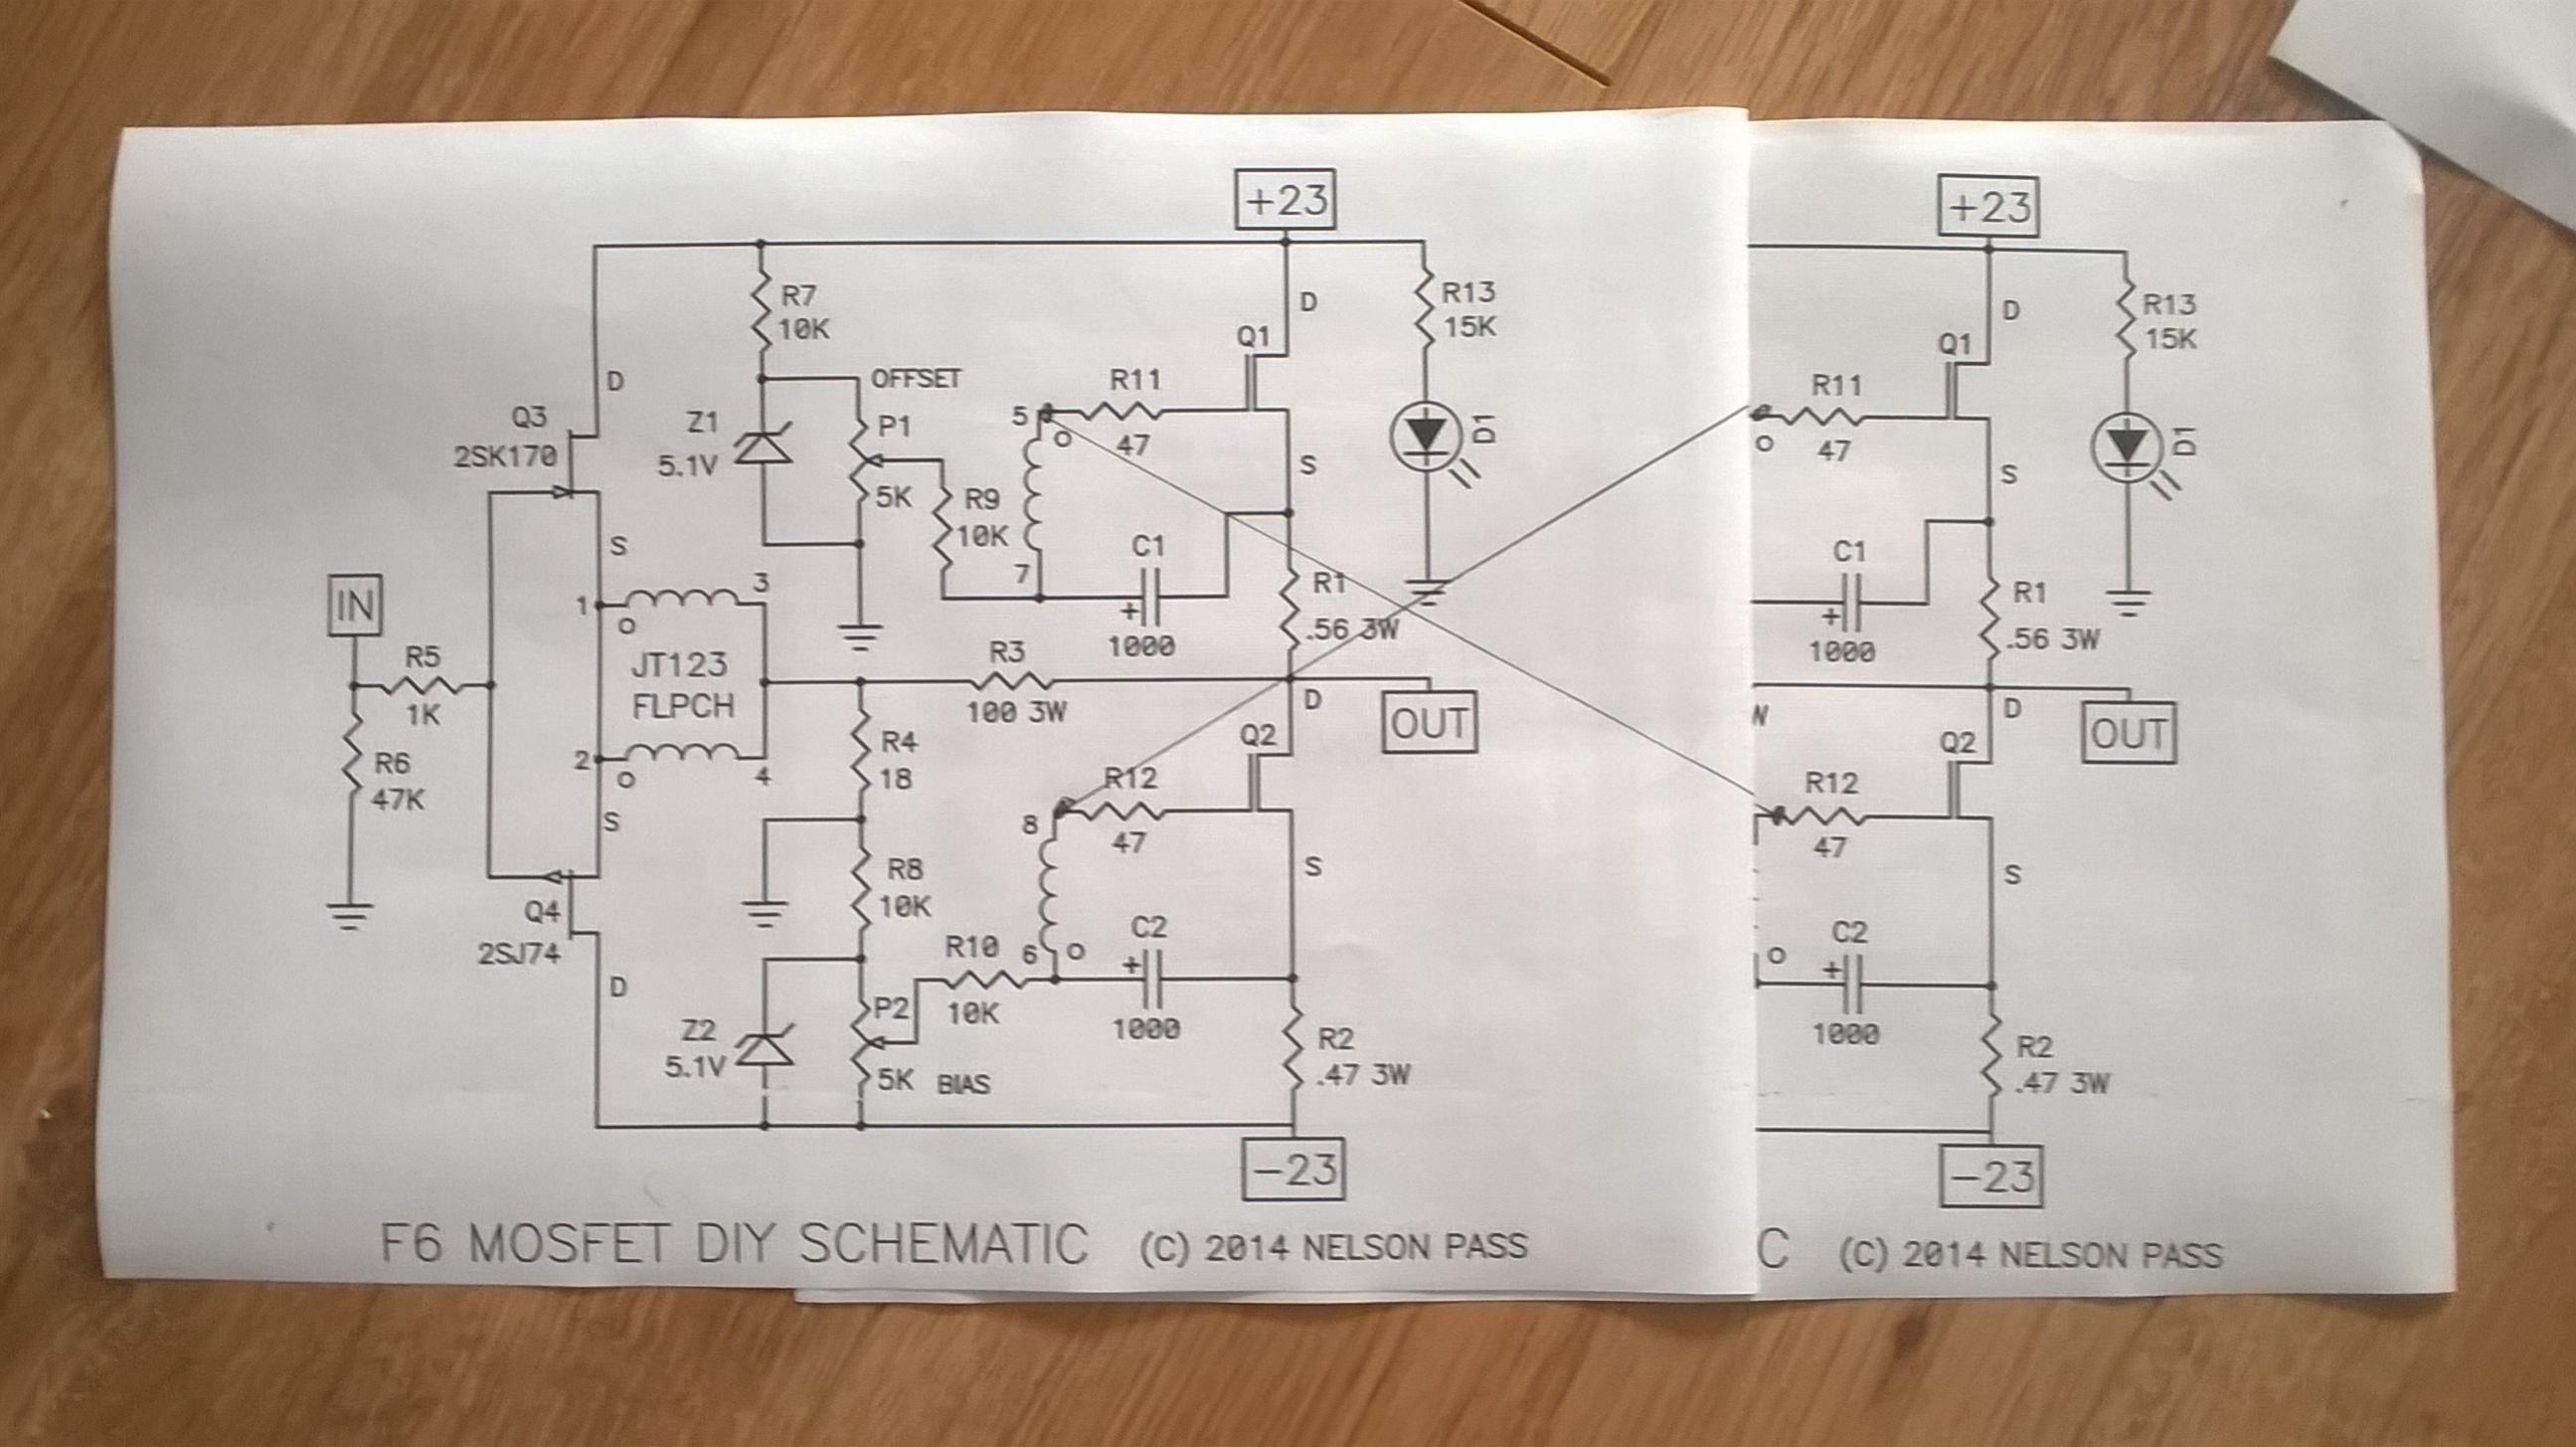 +23
R7
10K
D
R13
15K
Q1
D
OFFSET
R11
5
Q3
2SK170
Z1
5.1V
P1
O
47
D1
S
5K
R9
10K
S
C1
7
+
1000
3
1
O
R1
.56 3W
IN
R5
1K
JT123
FLPCH
R3
100 3W
D
OUT
R6
47K
2
O
4
R4
18
Q2
R12
8
47
S
S
R8
10K
Q4
2SJ74
D
R10
10K
6
O
C2
+
1000
P2
Z2
5.1V
5K
BIAS
R2
.47 3W
-23
F6 MOSFET DIY SCHEMATIC (C) 2014 NELSON PASS
+23
D
R13
15K
Q1
R11
O
47
D1
S
C1
+
1000
R1
.56 3W
D
OUT
Q2
R12
47
S
O
C2
+
1000
R2
.47 3W
-23
C (C) 2014 NELSON PASS